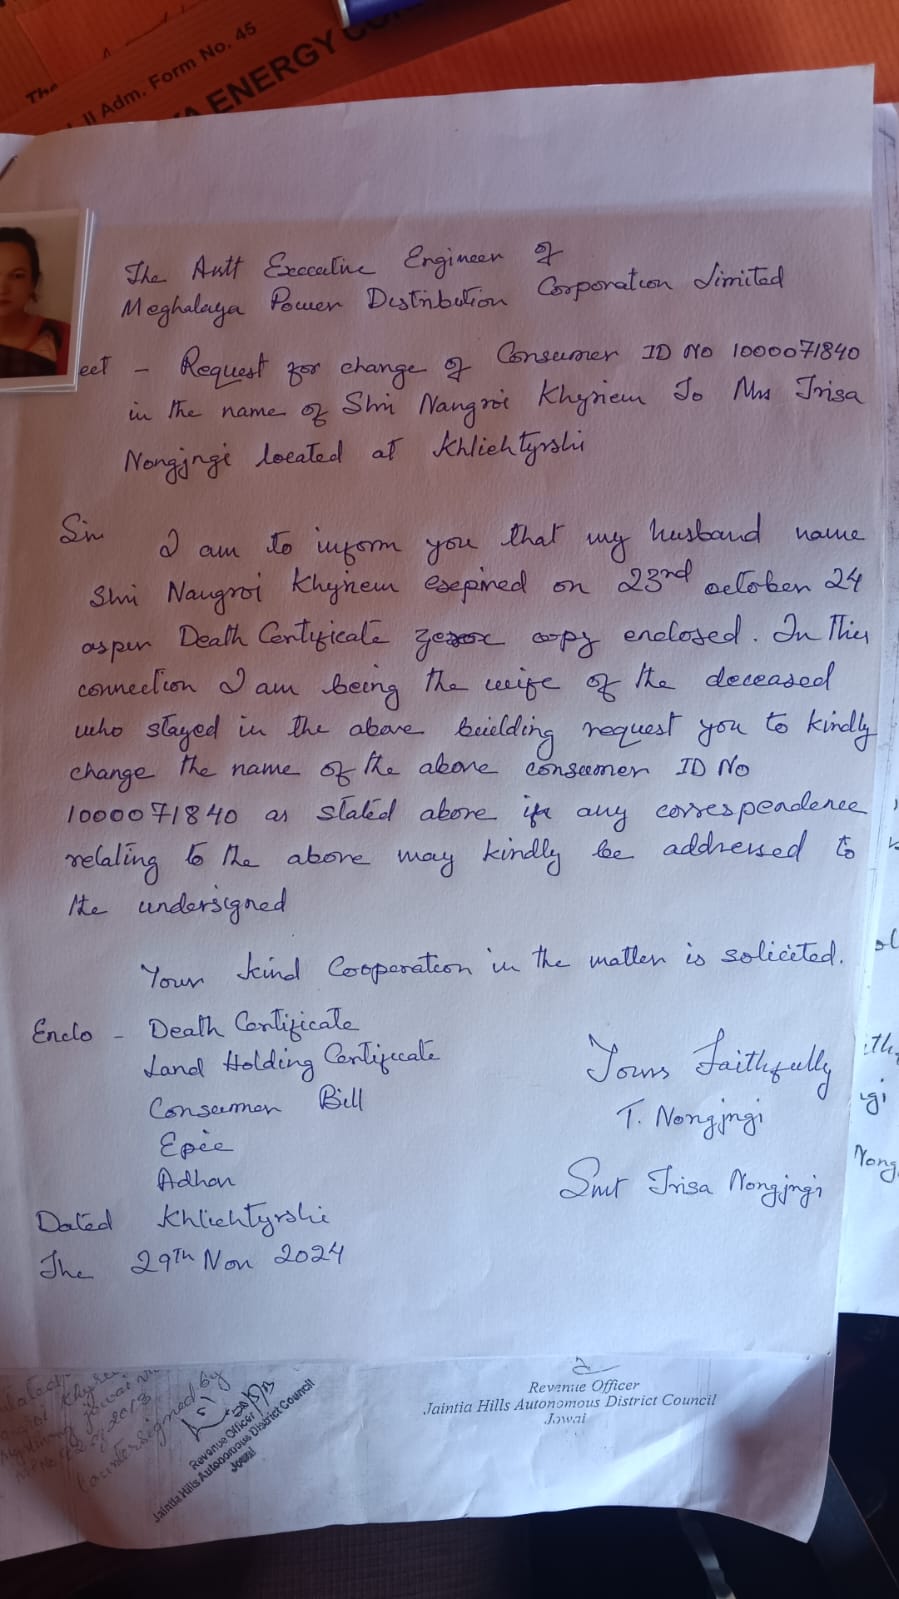 II Adm. Form No. 45
ENERGY
The Astt Execcutive Engineer of
Meghalaya Power Distribution Corporation Limited
ect - Request for change of Consumer ID No 1000071840
in the name of Shri Nangroi Khyriem To Mrs Trisa
Nongjngi located at Khliehtyrshi
Sir
I am to inform you that my husband name
Shri Nangroi Khyriem esepired on 23rd october 24
as per Death Certificate zerox copy enclosed. In This
connection I am being the wife of the deceased
who stayed in the above building request you to kindly
change the name of the above consumer ID No
1000071840 as stated above if any correspondence
relating to the above may kindly be addressed to
the undersigned
Your kind Cooperation in the matter is solicited.
Enclo - Death Certificate
Land Holding Certificate
Consumer Bill
Epic
Adhar
Yours Faithfully
T. Nongjngi
Smt Trisa Nongjngi
Dated Khliehtyrshi
The 29Th Nov 2024
Countersigned by
Revenue Officer
Jaintia Hills Autonomous District Council
Jowai
Revenue Officer
Jaintia Hills Autonomous District Council
Jowai